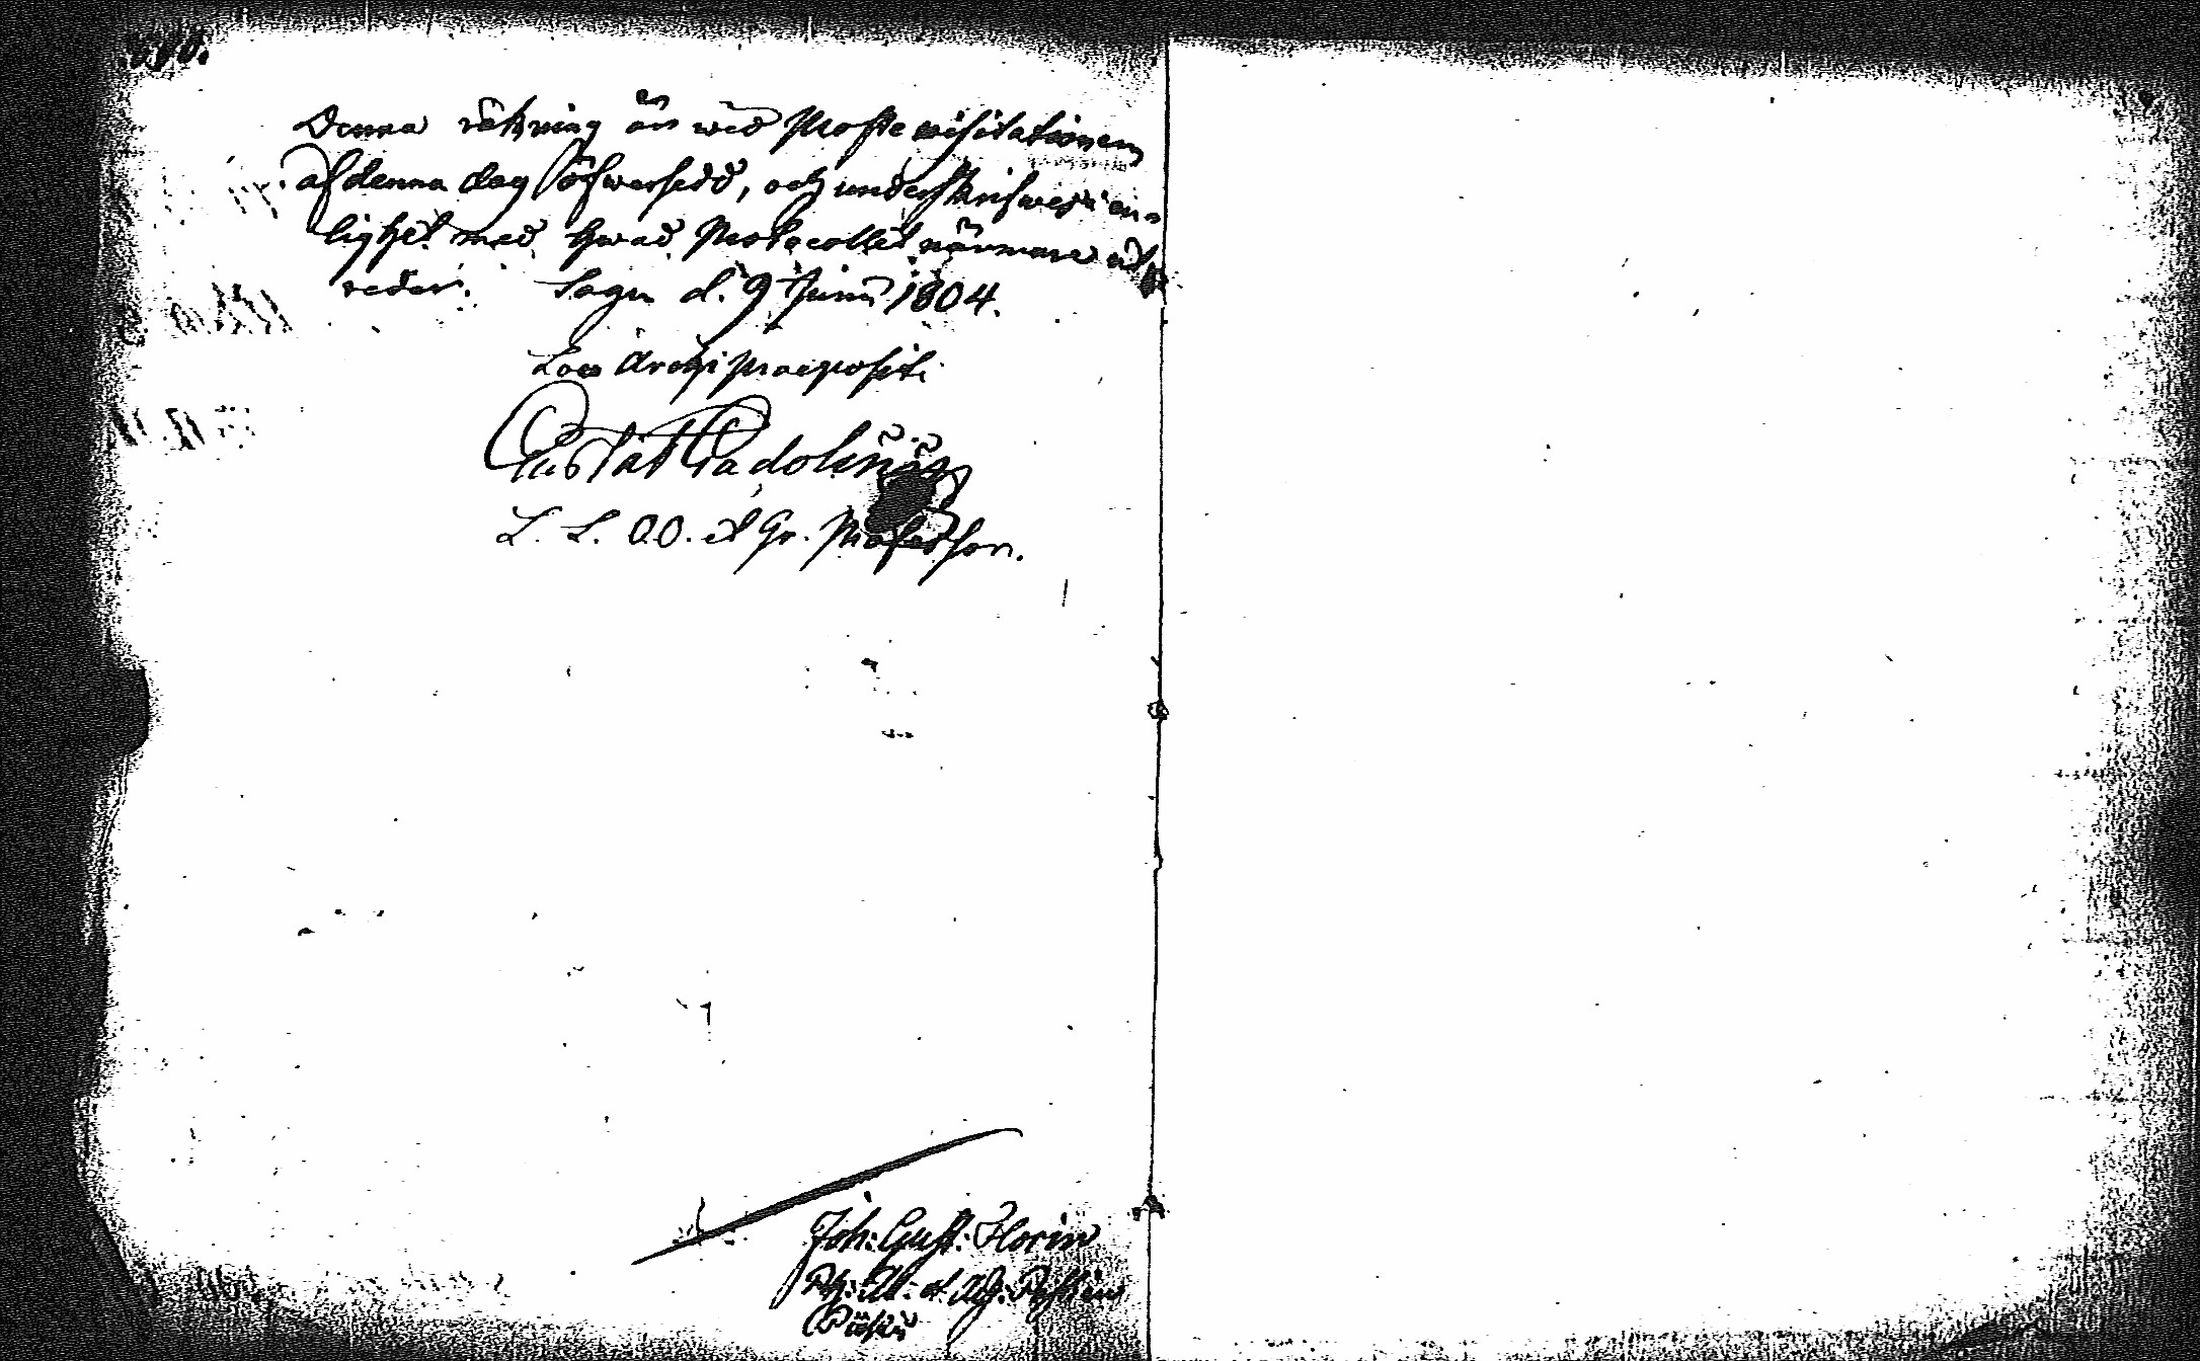 Denna räkning är wid Proste visitationen
af denna dag öfwersedd, och underskrifwen i en-
lighet med hwad Protocollet närmare ut-
reder. Sagu d. 9 Junii 1804.
Loco Archi Praepositi
Gustaf Gadolin
L. L. O.O. et Gr. Professor.
Joh: Gust: Florin
Ph: M: et Adj: